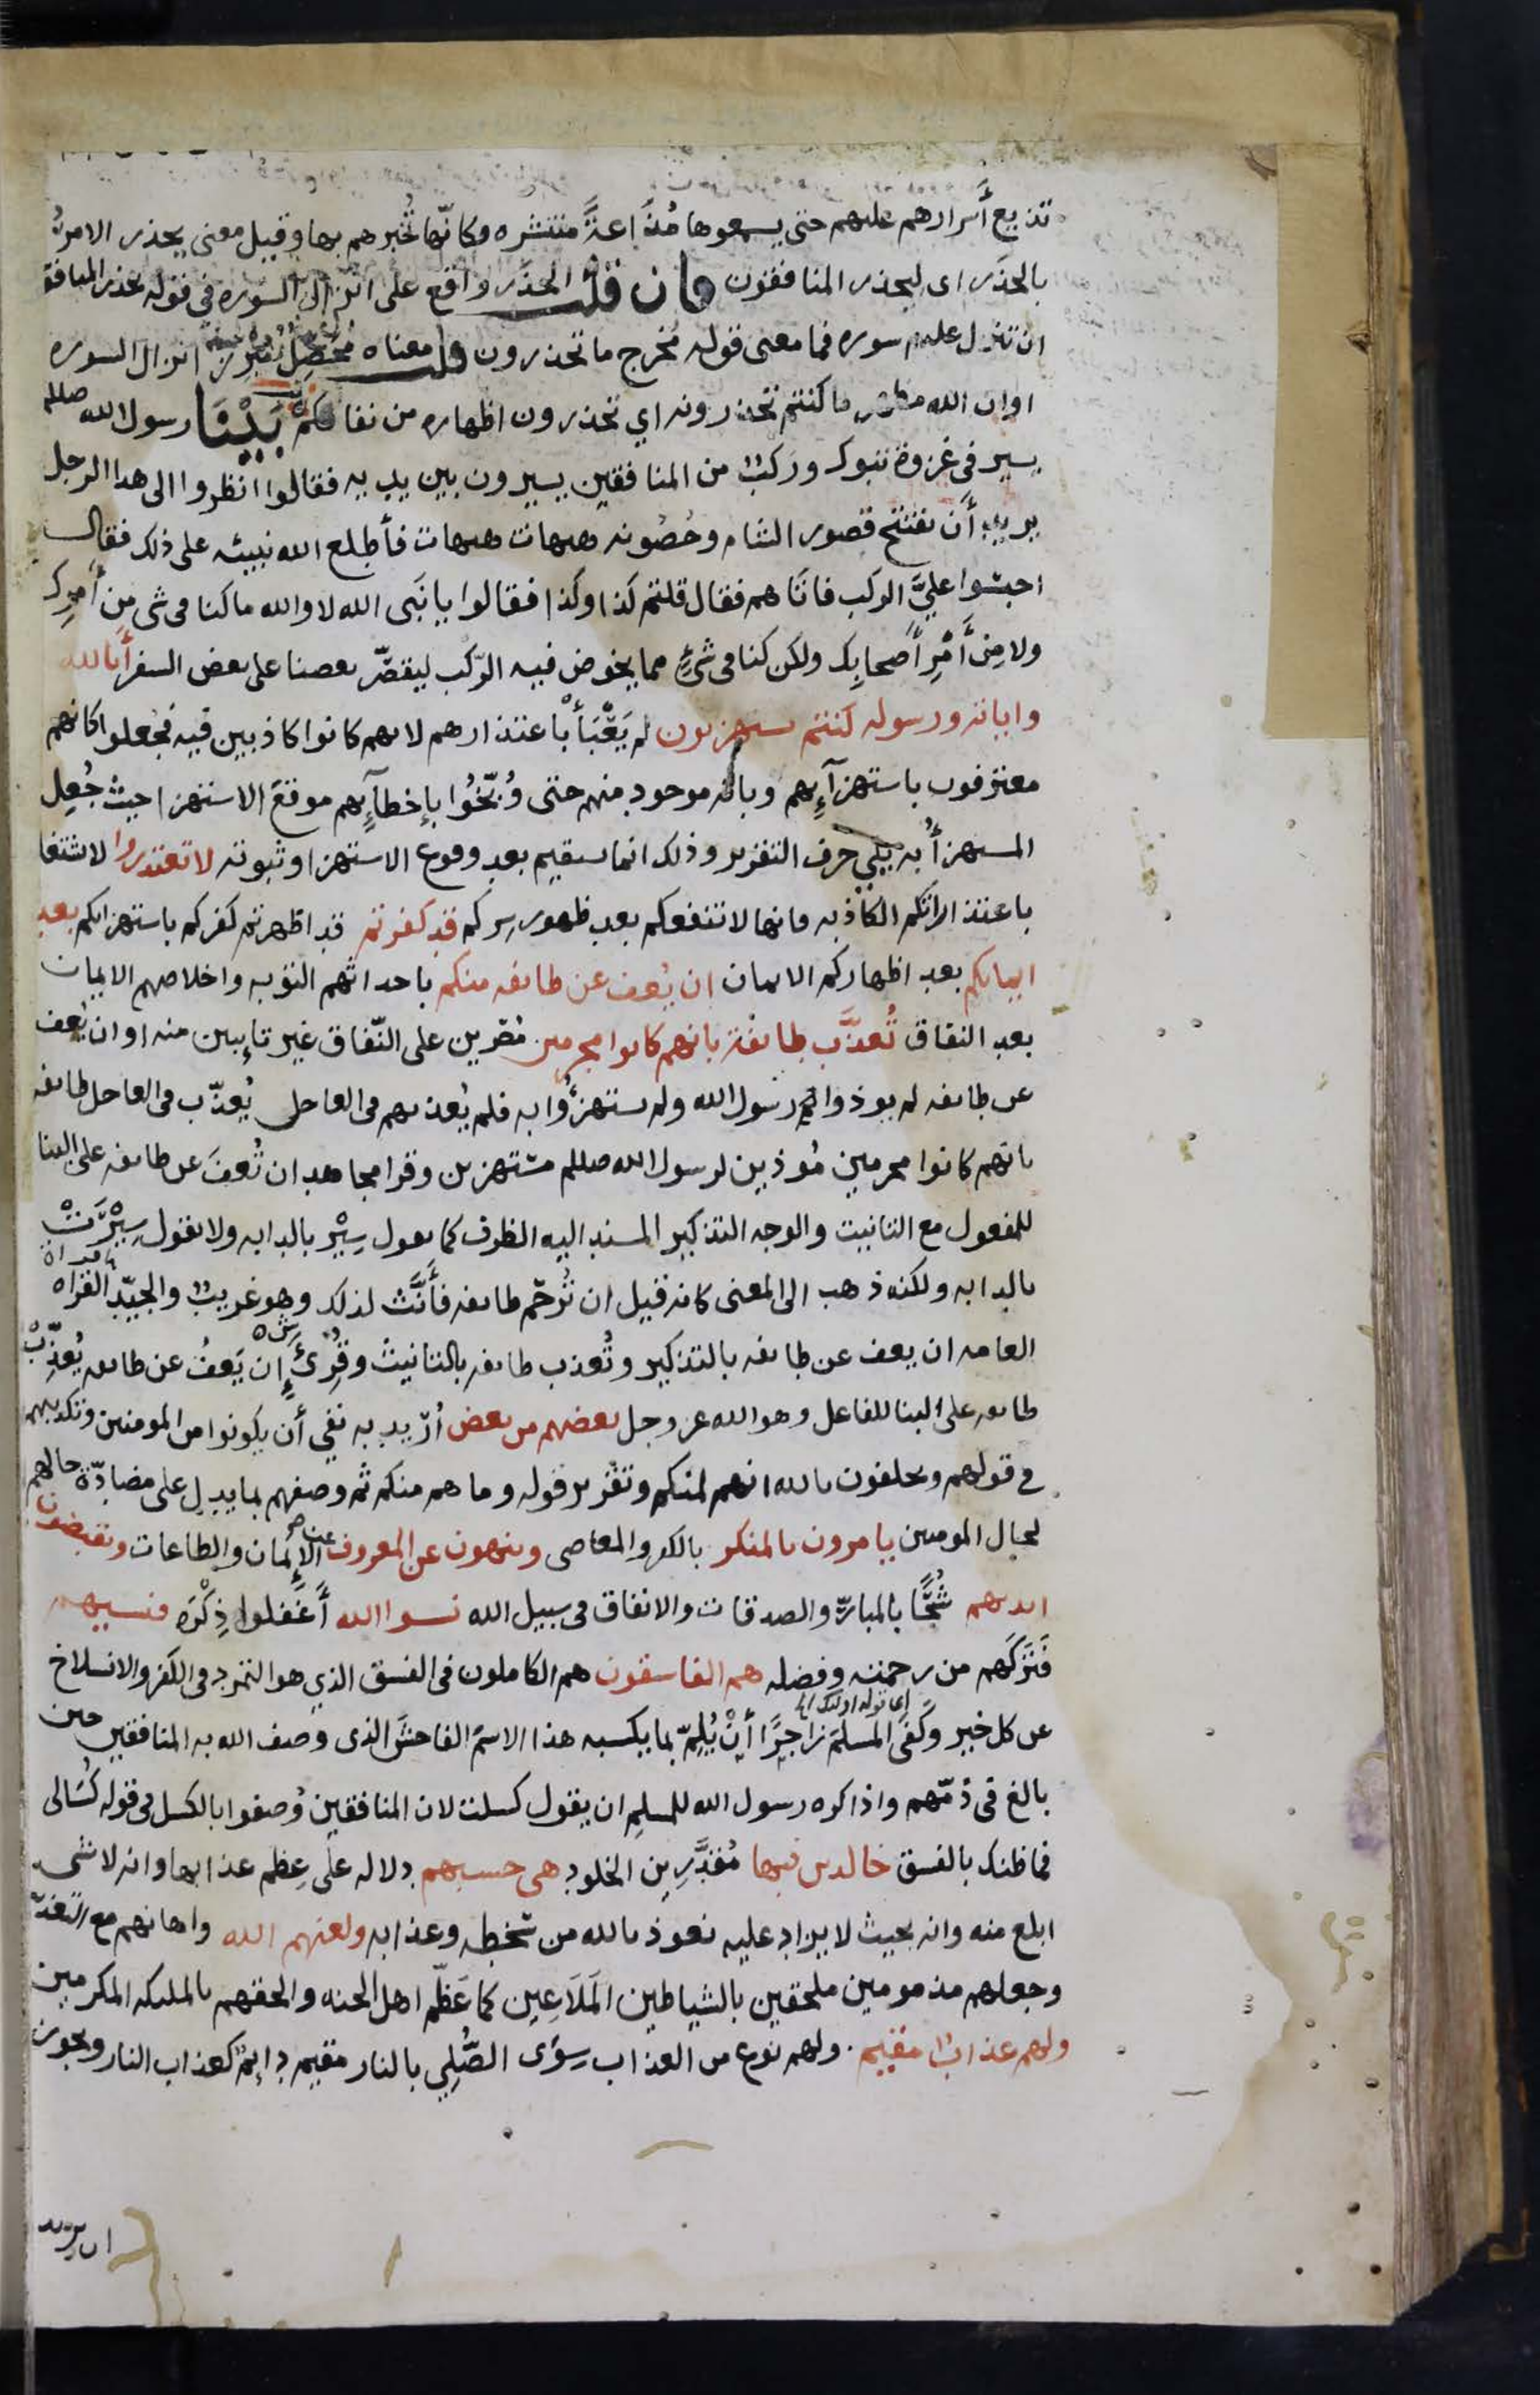 تذيع أسرارهم عليهم حتى يسمعوها مُذَاعةً منتشره فكأنّها تُخبرهم بها وقيل معنى يحذر الامرُ
بالحذَر اى ليحذر المنافقون فان قلت الحذَر واقع على انزال السوره فى قوله يحذر المنافقو
ان تنزل عليهم سوره فما معنى قوله مُخرج ما تحذرون قلت معناه مُحَصِّلٌ مُبرِز انزال السوره
اوان الله مظهر ما كنتم تحذرونه اي تحذرون اظهاره من نفاقكم بَيْنَا رسول الله صللم
يسير فى غزوة تبوك وركبٌ من المنافقين يسيرون بين يديه فقالوا انظروا الى هذا الرجل
يريد أن يفتتح قصور الشام وحُصُونه هيهات هيهات فأطلع الله نبيه على ذلك فقال
احبسُوا عليَّ الركب فاتاهم فقال قلتم كذا وكذا فقالوا يا نبَى الله لا والله ما كنا فى شى مِن أمرِك
ولا مِن أَمْرِ أصحابِك ولكن كنا فى شئٍ مما يخوض فيه الرّكب ليقصّر بعضنا على بعض السفر أبالله
واياته ورسوله كنتم تستهزون لم يَعْبَأْ باعتذارهم لانهم كانوا كاذبين فيه فجعلوا كانهم
معترفون باستهزآيِهم وبانه موجود منهم حتى وُبِّخُوا بإخطآيِهم موقعَ الاستهزا حيث جُعِل
المستهزأُ به يلي حرف التقرير وذلك انما يستقيم بعد وقوع الاستهزا وثبوته لا تعتذروا لا تشتغلوا
باعتذاراتكم الكاذبه فانها لا تنفعكم بعد ظهور سركم قد كفرتم قد اظهرتم كفركم باستهزايكم بعد
ايمانكم بعد اظهاركم الايمان ان يُعف عن طايفه منكم باحداثهم التوبه واخلاصهم الايمان
بعد النفاق تُعذَّب طايفة بانهم كانوا مجرمين مُصّرين على النّفاق غير تايبين منه اوان يُعف
عن طايفه لم يوذوا رسول الله ولم يستهزؤُا به فلم يُعذبهم فى العاجل يُعذّب فى العاجل طايفه
بانهم كانوا مجرمين مُوذين لرسول الله صللم مستهزين وقرا مجاهد ان تُعفَ عن طايفه على البنا
للمفعول مع التانيث والوجه التذكير المسند اليه الظرف كما تقول سِيْر بالدابه ولا تقول سِيْرَتْ
بالدابه ولكنه ذهب الى المعنى كانه قيل ان تُرحَم طايفه فأنَّث لذلك وهو غريبٌ والجيّد القراه
العامه ان يعف عن طايفه بالتذكير وتُعذب طايفه بالتانيث وقُرِئَ إِن يَعفُ عن طايفه يُعذِّبْ
طايفه على البنا للفاعل وهو الله عز وجل بعضهم من بعض أُرِيد به نفي أن يكونوا من المومنين وتكذيبهم
في قولهم ويحلفون بالله انهم لمنكم وتقرير قوله وما هم منكم ثم وصفهم بما يدل على مضادّة حالهم
لحال المومنين يامرون بالمنكر بالكفر والمعاصى وينهون عن المعروف عن الإيمان والطاعات ويقبضون
ايديهم شُحًّا بالمبارّ والصدقات والانفاق فى سبيل الله نسوا الله أَغفلوا ذِكْرَه فنسيهم
فَتَرَكَهم من رحمته وفضله هم الفاسقون هم الكاملون فى الفسق الذي هو التمرد فى الكفر والانسلاخ
عن كل خير وكفَى المسلمَ زاجرًا أنْ يُلِمّ بما يكسبه هذا الاسمَ الفاحشَ الذى وصف الله به المنافقين حين
بالغ فى ذمّهم واذا كره رسول الله للمسلمِ ان يقول كسلت لان المنافقين وُصفوا بالكسل فى قوله كُسَالى
فما ظنك بالفسق خالدين فيها مُقدَّرِين الخلود هى حسبهم دلاله على عِظَم عذابها وانه لا شى
ابلغ منه وانه بحيث لا يزاد عليه نعوذ بالله من سخطه وعذابه ولعنهم الله واهانهم مع التعذ
وجعلهم مذمومين ملحقين بالشياطين المَلَاعِين كما عَظّم اهل الجنه والحقهم بالمليكه المكرمين
ولهم عذابٌ مقيم . ولهم نوع من العذاب سِوَى الصُّلِي بالنار مقيم دايمٌ كعذاب النار ويجوز
ان يريد